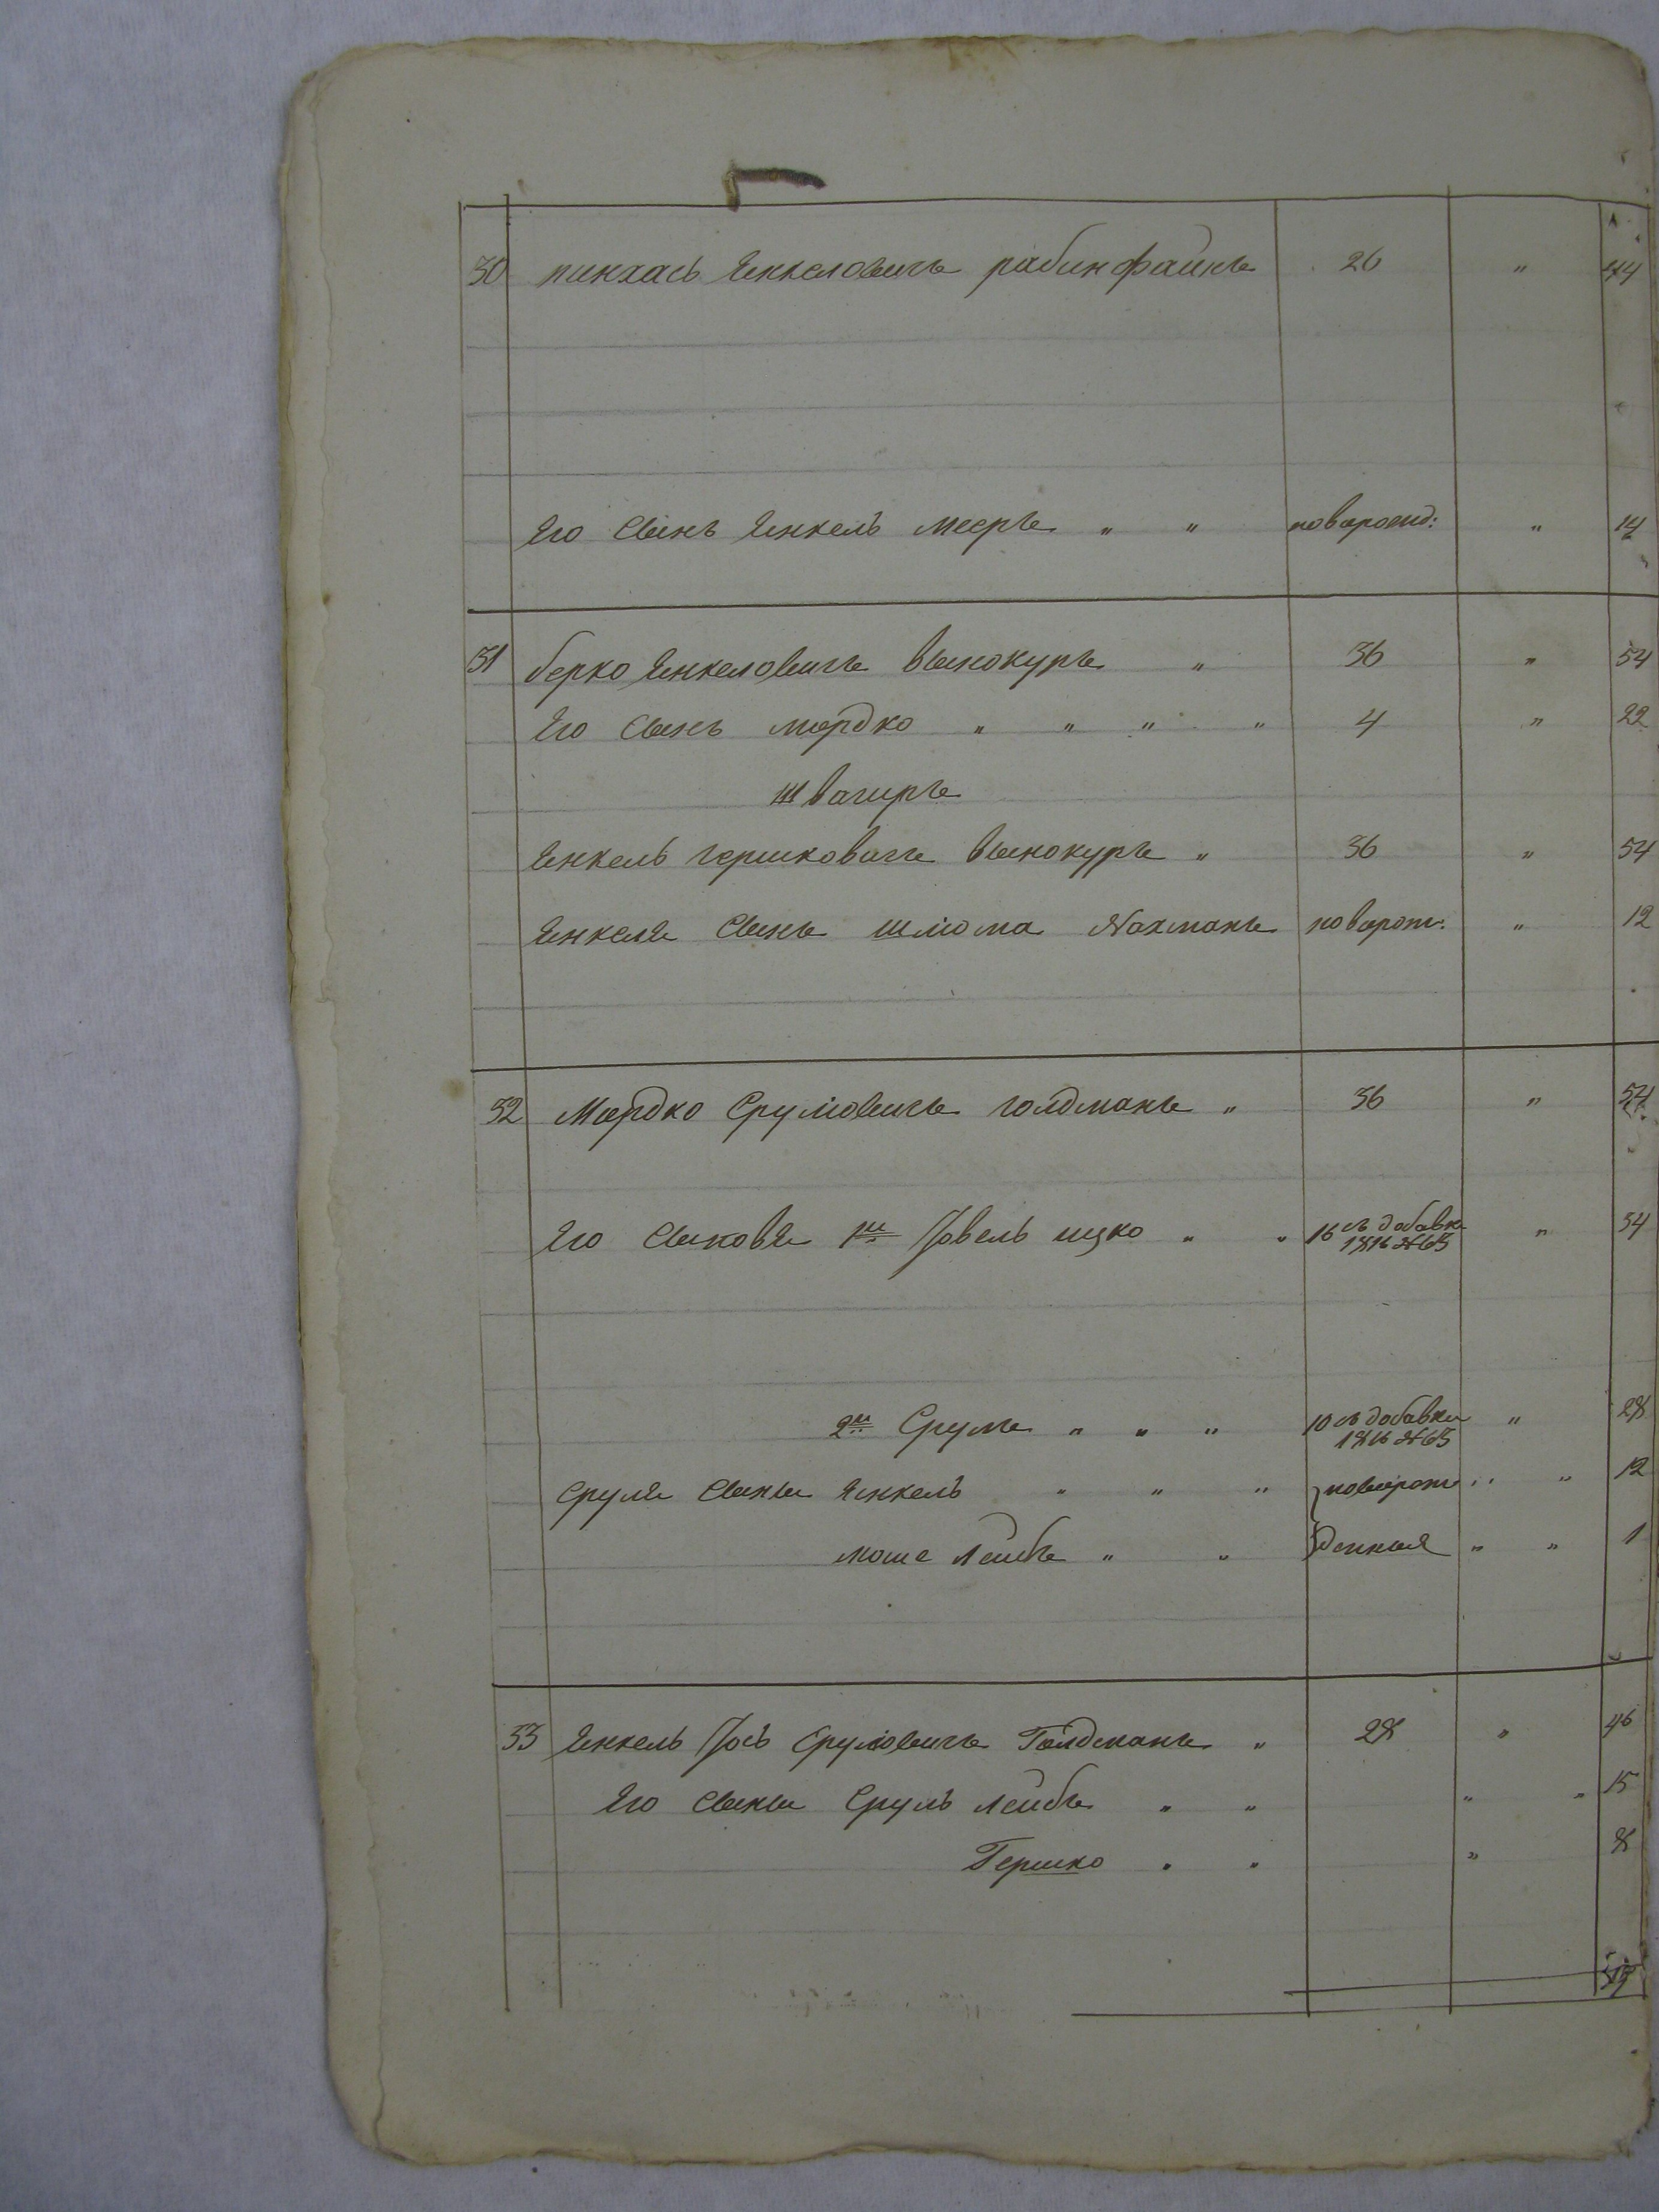 30 пинхасъ Янкеловичъ рабинфаинъ 26 " 44
Его Сынъ Янкель мееръ " " новарожд: " 14
31 берко Янкеловичъ вынокуръ " 36 " 54
Его Сынъ мордко " " " " 4 " 22
швагиръ
Янкель гершковичъ вынокуръ " 36 " 54
Янкеля Сынъ шліома Нахманъ новарож: " 12
32 Мордко Срулiовичъ голдманъ " 36 " 54
Его Сыновя 1й Іовель ицко " " 16 съ добавки 1816 № 65 " 34
2й Сруль " " " 10 съ добавки 1816 № 65 " 28
Сруля Сыны Янкель " " " новарож " " 12
моше Леибъ " " денныя " " 1
33 Янкель Іось Срулiовичъ Голдманъ " 28 " 46
Его Сыны Сруль Леибъ " " " " 15
Гершко " " " 8